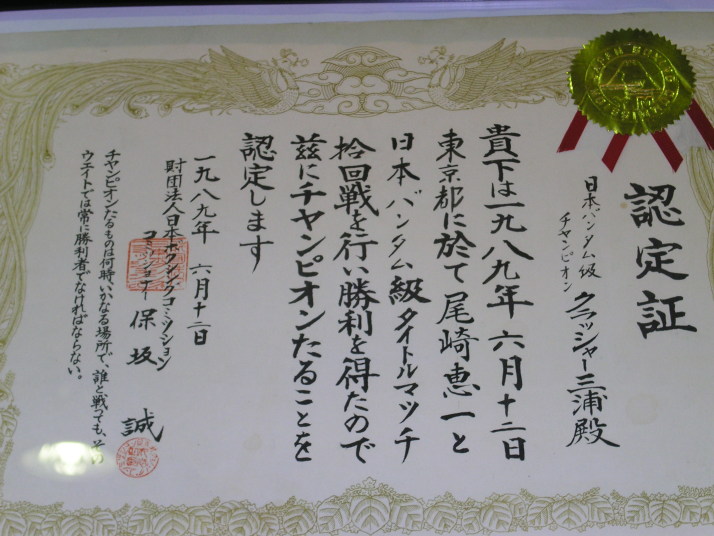 認定証
日本バンタム級
チャンピオン
クラッシャー三浦殿
貴下は一九八九年六月十二日
東京都に於て尾崎恵一と
日本バンタム級タイトルマッチ
拾回戦を行い勝利を得たので
茲にチャンピオンたることを
認定します
一九八九年 六月十二日
財団法人日本ボクシングコミッション
コミッショナー 保坂 誠
チャンピオンたるものは何時いかなる場所で、誰と戦っても、その
ウエイトでは常に勝利者でなければならない。